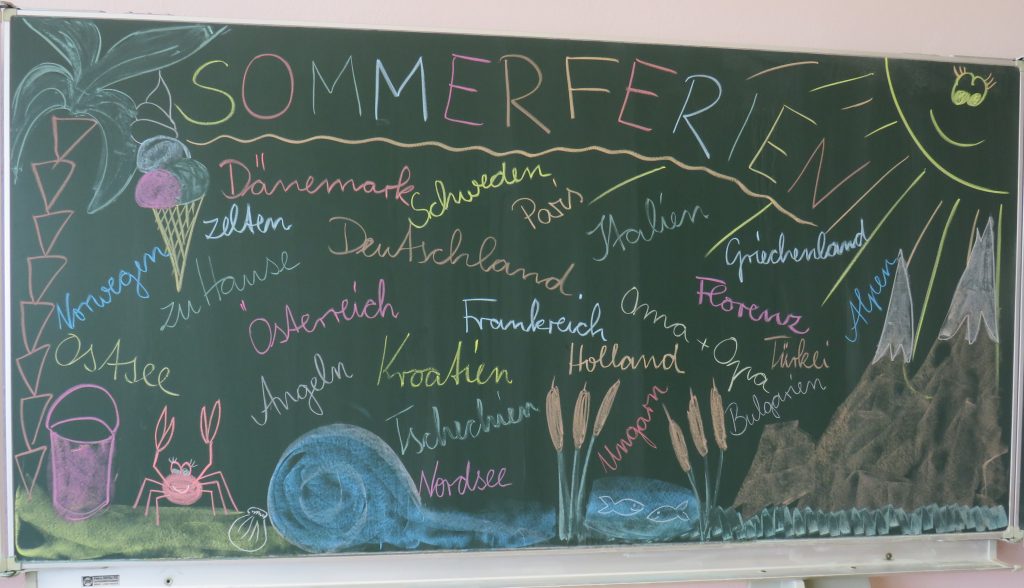 SOMMERFERIEN
Dänemark
Schweden
Paris
zelten
Deutschland
Italien
Griechenland
Norwegen
zu Hause
Österreich
Frankreich
Oma + Opa
Florenz
Alpen
Ostsee
Angeln
Kroatien
Holland
Türkei
Tschechien
Ungarn
Bulgarien
Nordsee